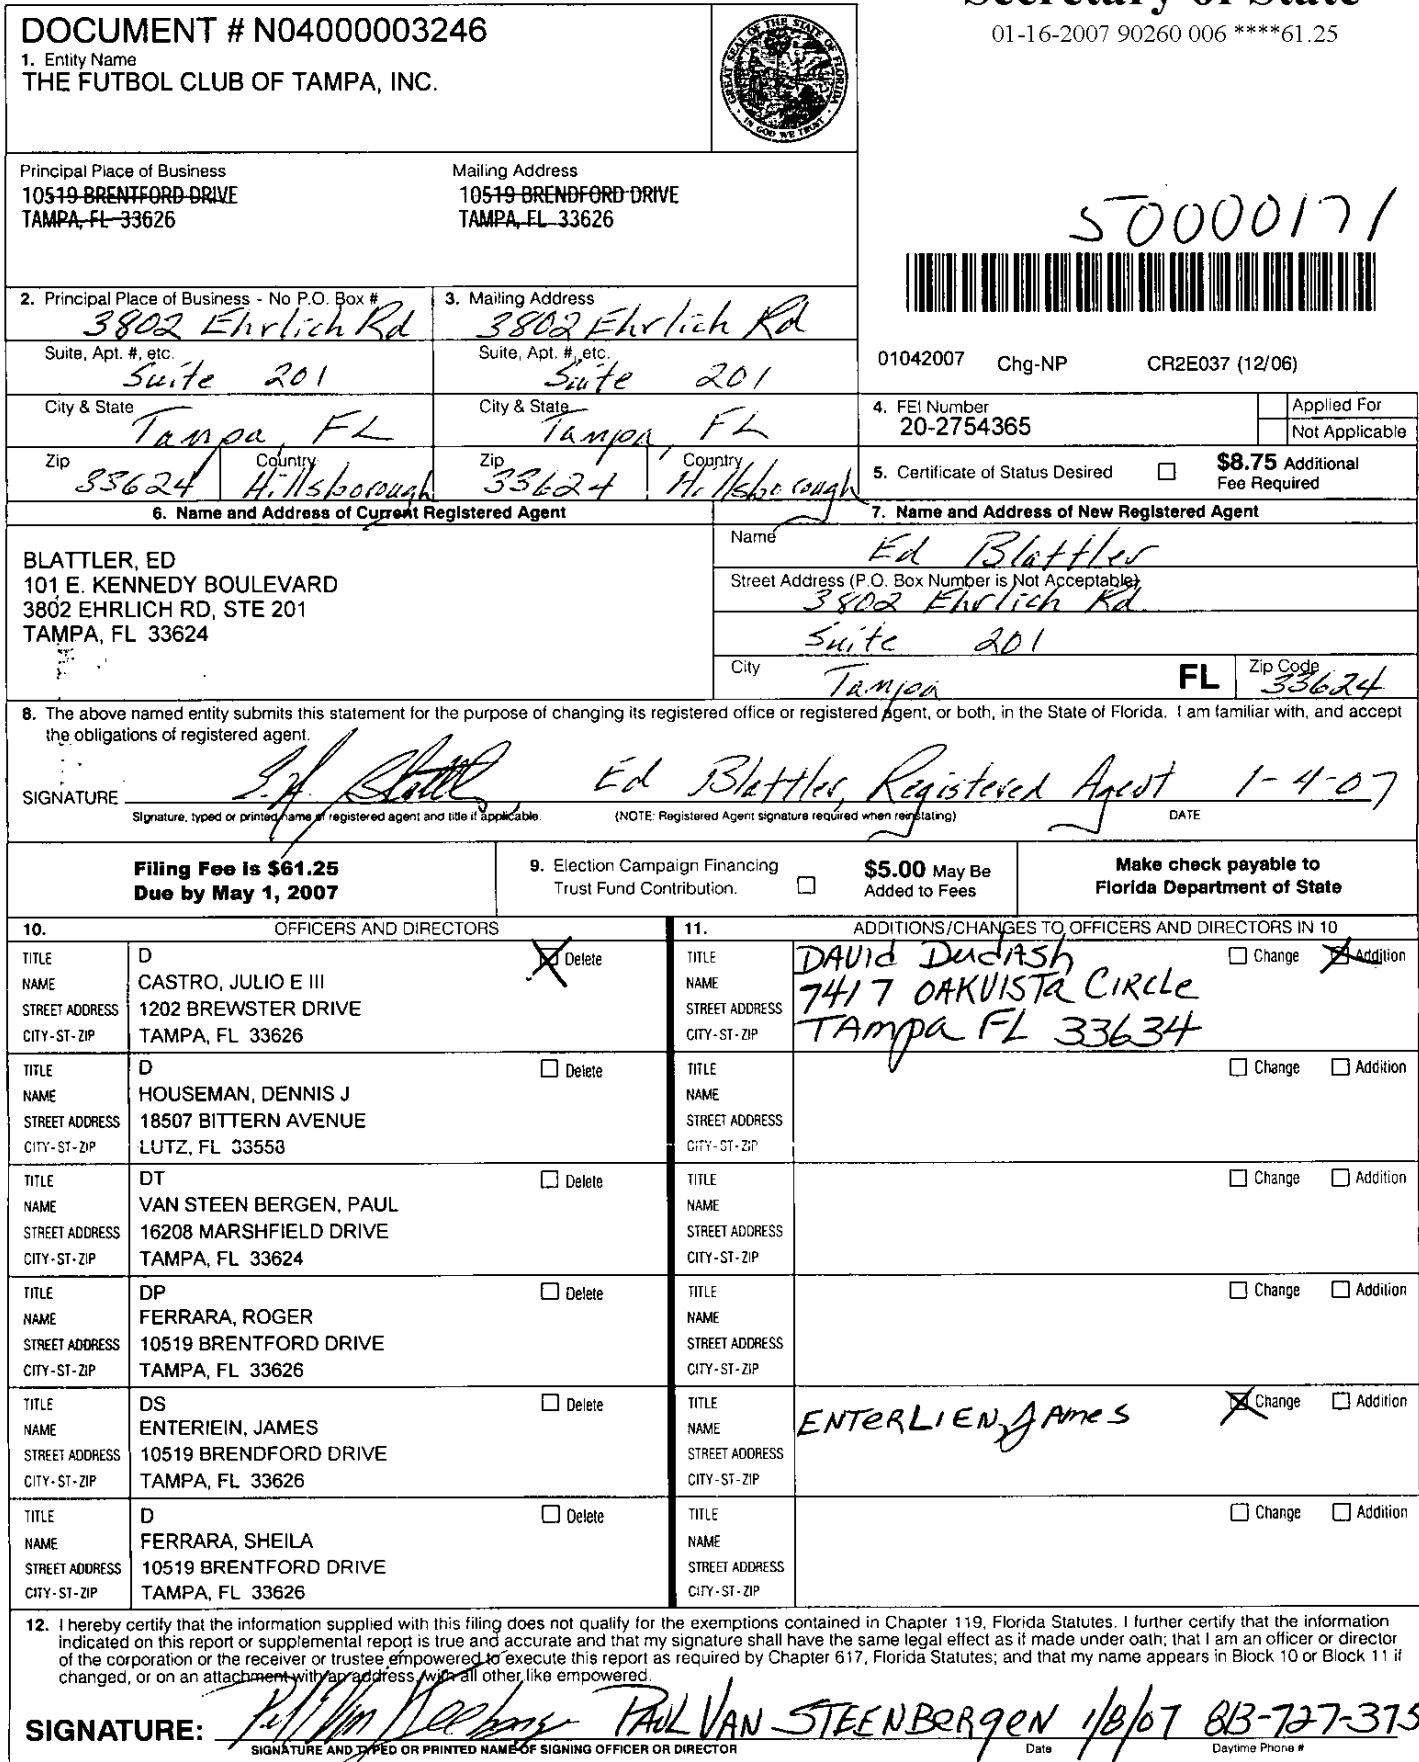 Secretary of State
01-16-2007 90260 006 ****61.25
DOCUMENT # N04000003246
1. Entity Name
THE FUTBOL CLUB OF TAMPA, INC.
GREAT SEAL OF THE STATE OF FLORIDA
IN GOD WE TRUST
Principal Place of Business
10519 BRENTFORD DRIVE
TAMPA, FL 33626
Mailing Address
10519 BRENDFORD DRIVE
TAMPA, FL 33626
50000171
2. Principal Place of Business - No P.O. Box #
3802 Ehrlich Rd
Suite, Apt. #, etc.
Suite 201
City & State
Tampa, FL
Zip
33624
Country
Hillsborough
3. Mailing Address
3802 Ehrlich Rd
Suite, Apt. #, etc.
Suite 201
City & State
Tampa, FL
Zip
33624
Country
Hillsborough
01042007 Chg-NP CR2E037 (12/06)
4. FEI Number
20-2754365
Applied For
Not Applicable
5. Certificate of Status Desired
$8.75 Additional
Fee Required
6. Name and Address of Current Registered Agent
BLATTLER, ED
101 E. KENNEDY BOULEVARD
3802 EHRLICH RD, STE 201
TAMPA, FL 33624
7. Name and Address of New Registered Agent
Name
Ed Blattler
Street Address (P.O. Box Number is Not Acceptable)
3802 Ehrlich Rd.
Suite 201
City
Tampa
FL
Zip Code
33624
8. The above named entity submits this statement for the purpose of changing its registered office or registered agent, or both, in the State of Florida. I am familiar with, and accept
the obligations of registered agent.
SIGNATURE Ed Blattler, Registered Agent 1-4-07
Signature, typed or printed name of registered agent and title if applicable. (NOTE: Registered Agent signature required when reinstating) DATE
Filing Fee is $61.25
Due by May 1, 2007
9. Election Campaign Financing
Trust Fund Contribution.
$5.00 May Be
Added to Fees
Make check payable to
Florida Department of State
10. OFFICERS AND DIRECTORS
11. ADDITIONS/CHANGES TO OFFICERS AND DIRECTORS IN 10
TITLE D Delete
NAME CASTRO, JULIO E III
STREET ADDRESS 1202 BREWSTER DRIVE
CITY-ST-ZIP TAMPA, FL 33626
TITLE Change Addition
NAME DAVid DudASh
STREET ADDRESS 7417 OAKVISTa CIRCle
CITY-ST-ZIP TAmpa FL 33634
TITLE D Delete
NAME HOUSEMAN, DENNIS J
STREET ADDRESS 18507 BITTERN AVENUE
CITY-ST-ZIP LUTZ, FL 33558
TITLE Change Addition
NAME
STREET ADDRESS
CITY-ST-ZIP
TITLE DT Delete
NAME VAN STEEN BERGEN, PAUL
STREET ADDRESS 16208 MARSHFIELD DRIVE
CITY-ST-ZIP TAMPA, FL 33624
TITLE Change Addition
NAME
STREET ADDRESS
CITY-ST-ZIP
TITLE DP Delete
NAME FERRARA, ROGER
STREET ADDRESS 10519 BRENTFORD DRIVE
CITY-ST-ZIP TAMPA, FL 33626
TITLE Change Addition
NAME
STREET ADDRESS
CITY-ST-ZIP
TITLE DS Delete
NAME ENTERIEIN, JAMES
STREET ADDRESS 10519 BRENDFORD DRIVE
CITY-ST-ZIP TAMPA, FL 33626
TITLE Change Addition
NAME ENTERLIEN, JAmes
STREET ADDRESS
CITY-ST-ZIP
TITLE D Delete
NAME FERRARA, SHEILA
STREET ADDRESS 10519 BRENTFORD DRIVE
CITY-ST-ZIP TAMPA, FL 33626
TITLE Change Addition
NAME
STREET ADDRESS
CITY-ST-ZIP
12. I hereby certify that the information supplied with this filing does not qualify for the exemptions contained in Chapter 119, Florida Statutes. I further certify that the information
indicated on this report or supplemental report is true and accurate and that my signature shall have the same legal effect as if made under oath; that I am an officer or director
of the corporation or the receiver or trustee empowered to execute this report as required by Chapter 617, Florida Statutes; and that my name appears in Block 10 or Block 11 if
changed, or on an attachment with an address, with all other like empowered.
SIGNATURE: PAUL VAN STEENBERgEN 1/8/07 813-727-375
SIGNATURE AND TYPED OR PRINTED NAME OF SIGNING OFFICER OR DIRECTOR Date Daytime Phone #